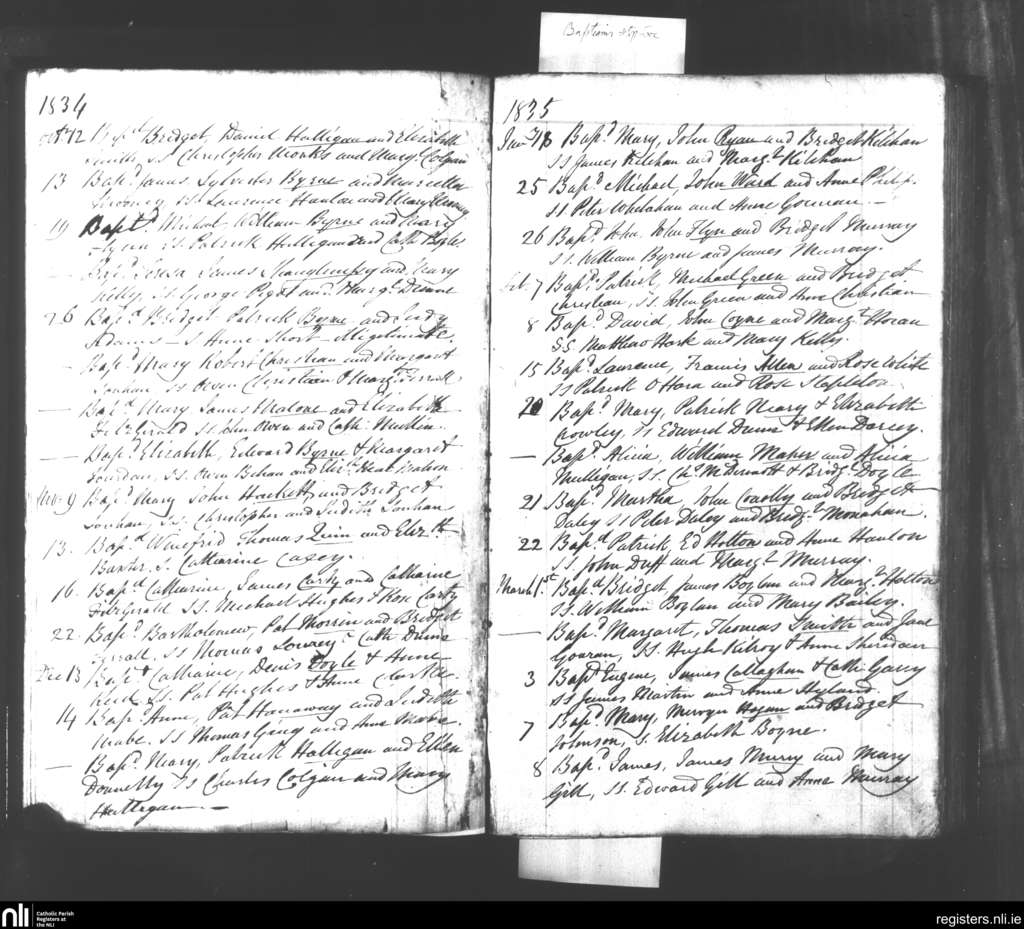 Baptisms
1834
Octr 12 Bapd Bridget, Daniel Halligan and Elizabeth
Smith, SS Christopher Monks and Margt Colgan
13 Bapd James, Sylvester Byrne and Marcella
SS Laurence Hanlon and Mary
19 Baptd Michael William Byrne and Mary
SS Patrick Halligan and Cath Boyle
— Bapd Teresa James Shaughnessy and Mary
Kelly, SS George and Margt Dunne
26 Bapd Bridget Patrick Byrne and Judy
Adams — S Anne Short — illigetimate.
— Bapd Mary Robert Christian and Margaret
SS Owen Christian & Margt
— Bapd Mary James Malone and Elizabeth
Fitzgerald SS John Owen and Cath:
— Bapd Elizabeth, Edward Byrne & Margaret
SS Owen Behan and Mahon
Nov 9 Bapd Mary John Hackett and Bridget
Lonham, SS. Christopher and Judith Lonham
13. Bapd Winefrid Thomas Quin and Elizth
Baxter. S. Catharine Casey.
16. Bapd Catharine, James Carty and Catharine
Fitzgerald SS. Michael Hughes & Rose Carty
22. Bapd Bartholomew, Pat Morrin and Bridget
SS Thomas Lowrey Cath Dunne
Dec 13 Bapd Catharine, Denis Doyle & Anne
SS. Pat Hughes & Anne Clarke
14 Bapd Anne, Pat Hanaway and Judith
Mabe. SS Thomas and Anne
— Bapd Mary, Patrick Halligan and Ellen
Donnelly SS Charles Colgan and Mary
Halligan —
1835
Jany 18 Bapd Mary, John Ryan and Bridget Kilehan
SS James Kilehan and Margt Kilehan
25 Bapd Michael, John Ward and Anne Philip.
SS Peter Whelahan and Anne Gouran. —
26 Bapd John. John Flyn and Bridget Murray
SS. William Byrne and James Murray.
Feb. 7 Bapd Patrick, Michael Green and Bridget
Christian, SS. John Green and Anne Christian
8 Bapd David, John Coyne and Margt Horan
SS Matthew Hark and Mary Kelly.
15 Bapd Laurence, Francis Allen and Rose White
SS Patrick O Hara and Rose Stapleton.
20 Bapd Mary, Patrick Neary & Elizabeth
Crowley, SS Edward Dunn & Ellen Darcey.
— Bapd Alicia, William Maher and Alicia
Mulligan, SS. Chs McDermott & Bridgt Doyle
21 Bapd Martha, John Coadly and Bridget
Daley SS Peter Daley and Bridgt Monahan.
22 Bapd Patrick, Ed Hotton and Anne Hanlon
SS. John Duff and Margt Murray.
March 1st Bapd Bridget, James Boylan and Margt Holton
SS. William Boylan and Mary Bailey.
— Bapd Margaret, Thomas Smith and Jane
Gouran, SS. Hugh Kilroy & Anne Sheridan
3 Bapd Eugene, James Callaghan & Cath: Garry
SS James Martin and Anne Hyland.
7 Bapd Mary, Mervyn Hogan and Bridget
Johnson, S. Elizabeth Boyne.
8 Bapd James, James Murry and Mary
Gill, SS. Edward Gill and Anne Murray
nli Catholic Parish
Registers at
the NLI
registers.nli.ie